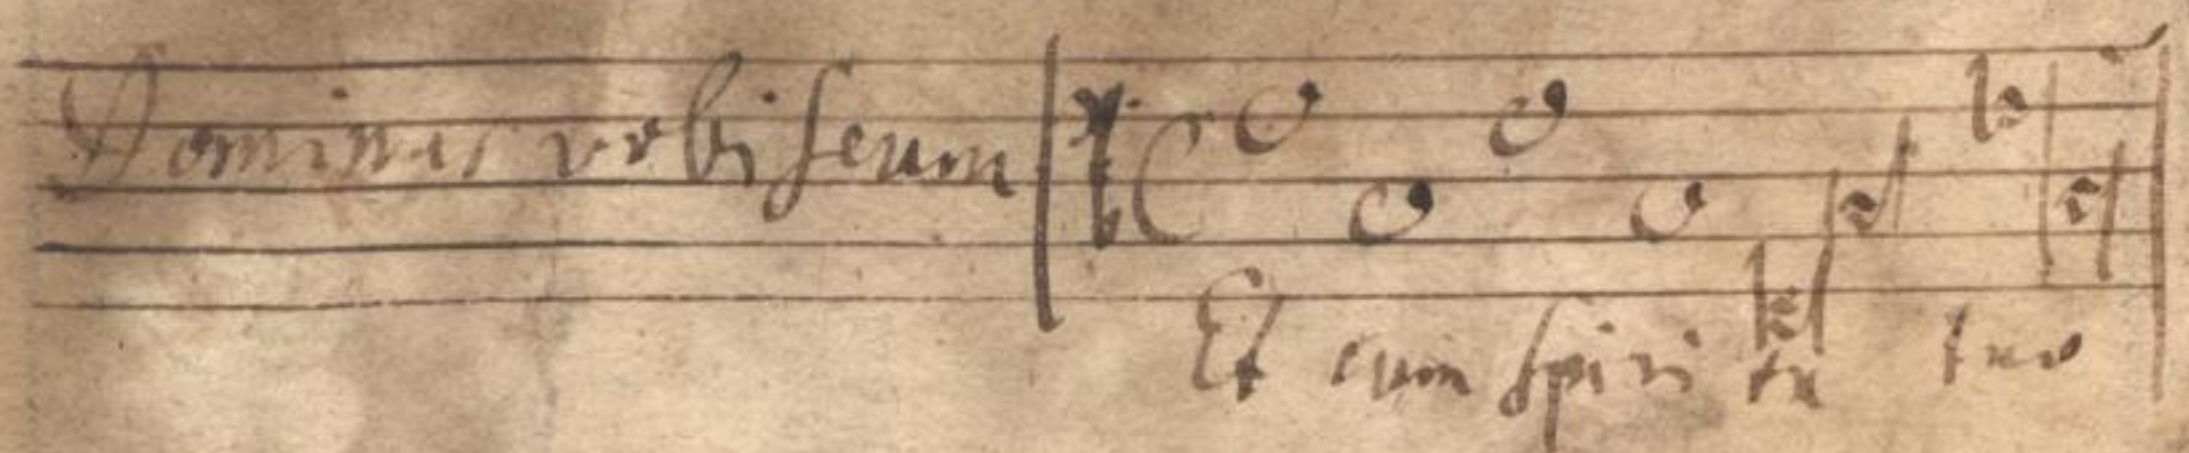 Dominus vobiscum
Et cum spiri tu tuo